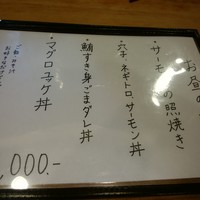 お昼の
・サーモンの照焼き
・穴子、ネギトロ、サーモン丼
・鯛すき身ごまダレ丼
・マグロユッケ丼
,000.-